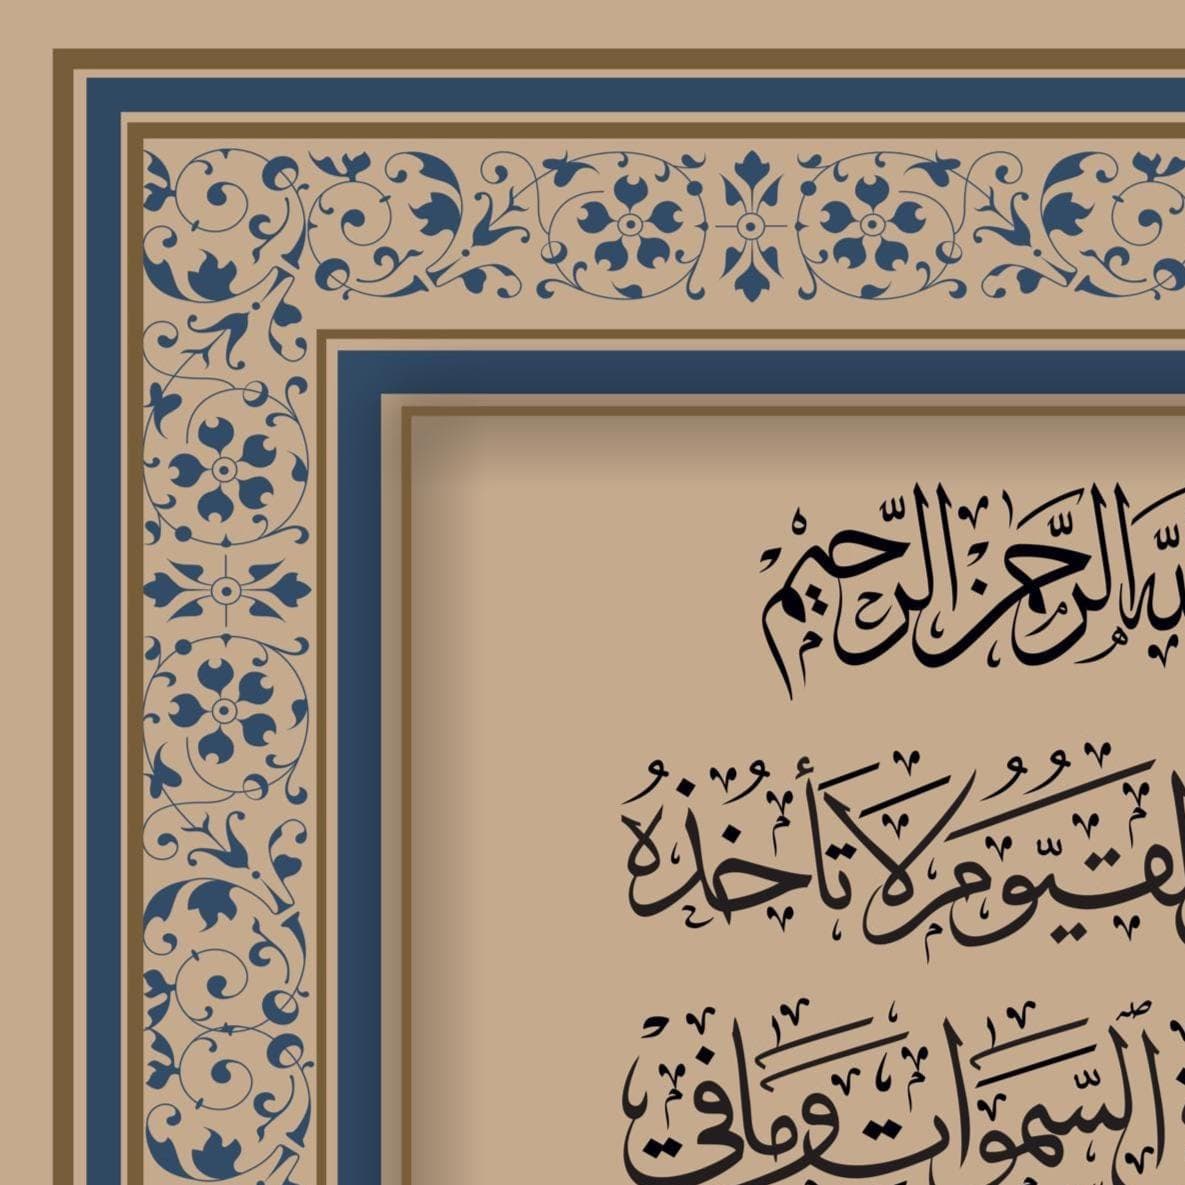 ـلّٰهِ الرَّحْمٰنِ الرَّحِيْمِ
ـلْقَيُّوْمُ لَا تَأْخُذُهٗ
السَّمٰوَاتِ وَمَا فِي